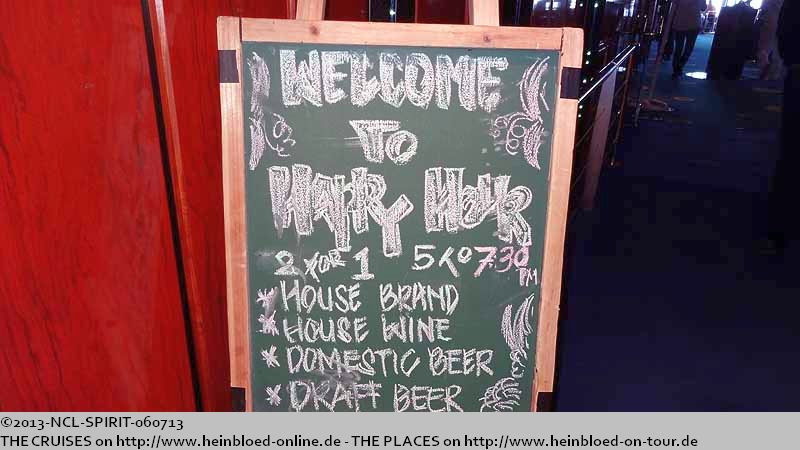 WELCOME
TO
HAPPY HOUR
2 FOR 1 5 TO 7:30 PM
* HOUSE BRAND
* HOUSE WINE
* DOMESTIC BEER
* DRAFT BEER
©2013-NCL-SPIRIT-060713
THE CRUISES on http://www.heinbloed-online.de - THE PLACES on http://www.heinbloed-on-tour.de